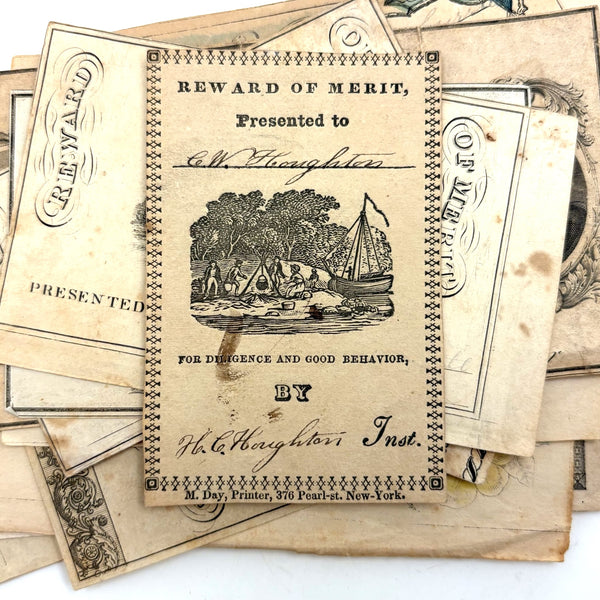 REWARD OF MERIT,
Presented to
C.W. Houghton
FOR DILIGENCE AND GOOD BEHAVIOR,
BY
H. C. Houghton Inst.
M. Day, Printer, 376 Pearl-st. New-York.
REWARD
OF MERIT
PRESENTED